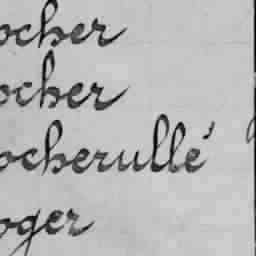 ocher
ocher
ocherullé
oger